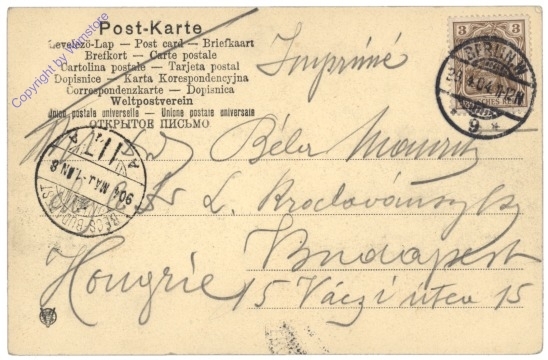 Post-Karte
Levelező-Lap — Post card — Briefkaart
Brefkort — Carte postale
Cartolina postale — Tarjeta postal
Dopisnice — Karta Korespondencyjna
Correspondenzkarte — Dopisnica
Weltpostverein
Union postale universelle — Unione postale universale
ОТКРЫТОЕ ПИСЬМО
Copyright by Wamstore
Imprimé
3 3
BERLIN W
9 *
Béla
L.
Budapest
Hongrie 15 Váczi utca 15
904 MAJ